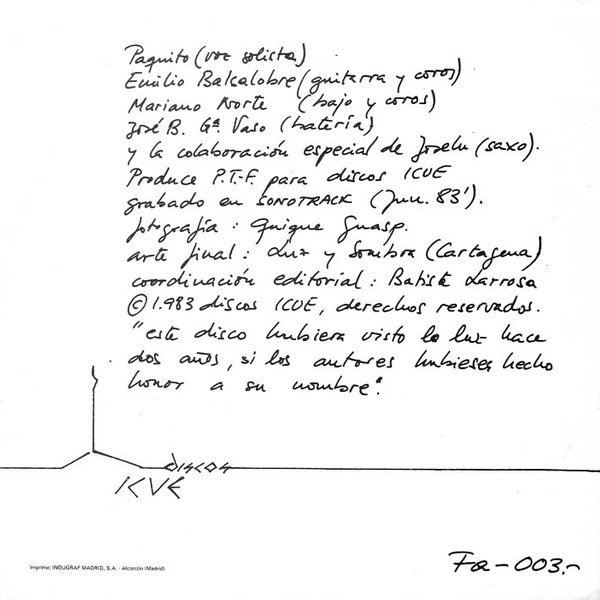 Paquito (voz solista)
Emilio Balcalobre (guitarra y coros)
Mariano Norte (bajo y coros)
José B. Gª. Vaso (batería)
y la colaboración especial de Joselu (saxo).
Produce P.T-F. para discos ICUE
grabado en SONOTRACK (Jun. 83').
fotografía: Quique Guasp.
arte final: Luz y Sombra (Cartagena)
coordinación editorial: Batiste Larrosa
© 1.983 discos ICUE, derechos reservados.
"este disco hubiera visto la luz hace
dos años, si los autores hubieses hecho
honor a su nombre".
discos
ICUE
Imprime: INDUGRAF MADRID, S.A. - Alcorcón (Madrid)
Fa-003.-